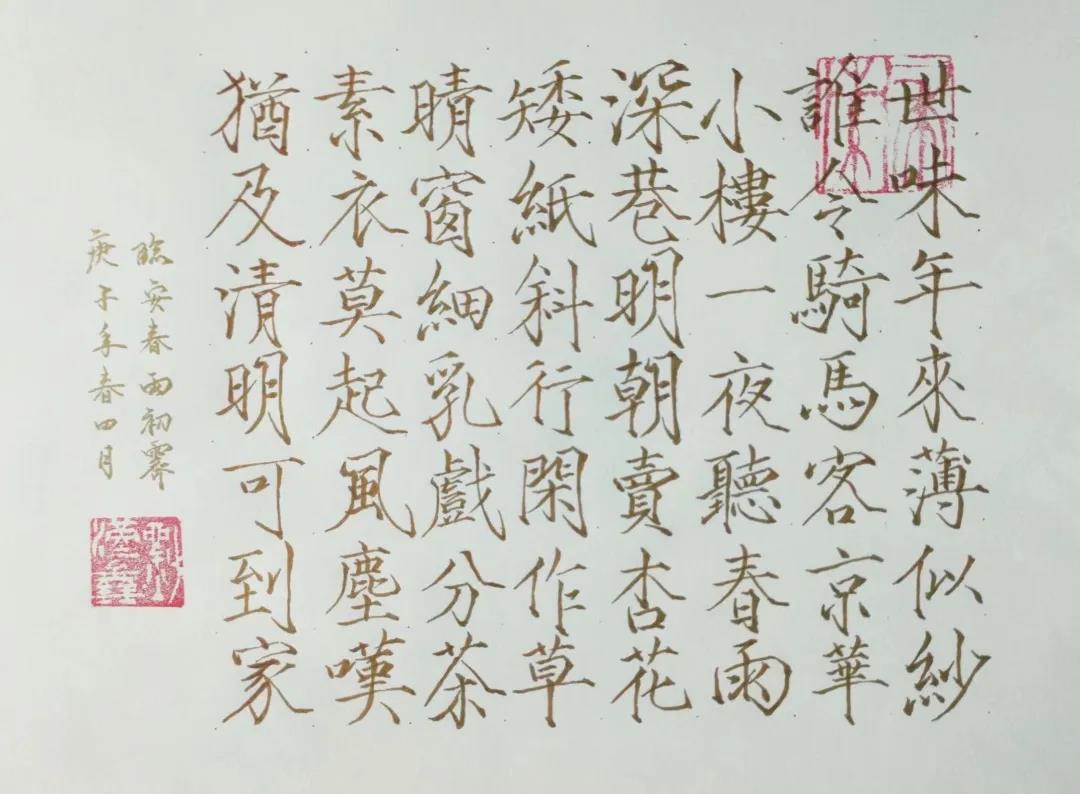 世味年來薄似紗
誰令騎馬客京華
小樓一夜聽春雨
深巷明朝賣杏花
矮紙斜行閑作草
晴窗細乳戲分茶
素衣莫起風塵嘆
猶及清明可到家
臨安春雨初霽
庚子年春四月